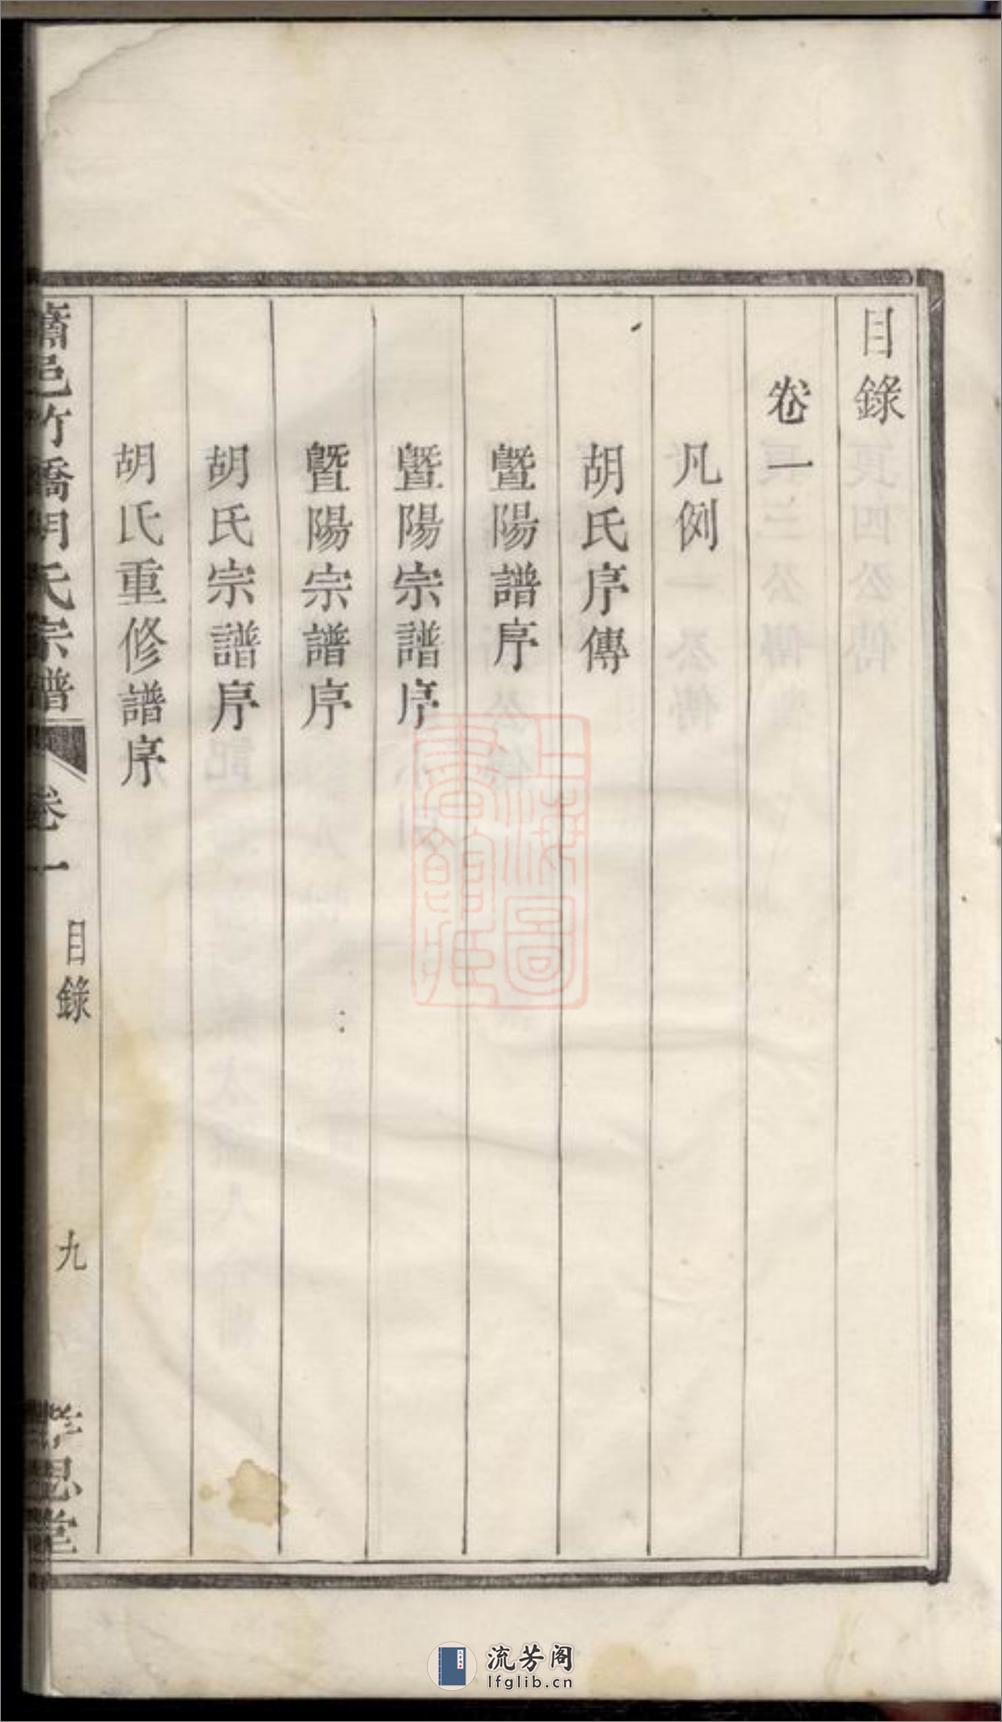 目錄
卷一
凡例
胡氏序傳
暨陽譜序
暨陽宗譜序
暨陽宗譜序
胡氏宗譜序
胡氏重修譜序
蕭邑竹橋胡氏宗譜
卷一
目錄
九
孝思堂
上海圖書館藏
流芳阁
lfglib.cn